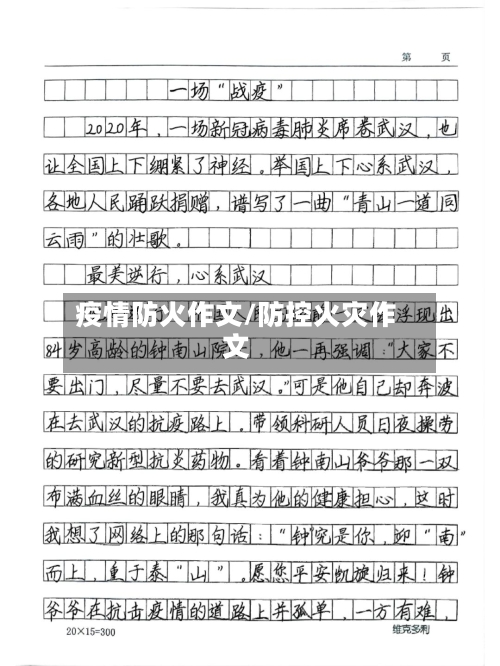 第 页
一场“战疫”
2020年，一场新冠病毒肺炎席卷武汉，也
让全国上下绷紧了神经。举国上下心系武汉，
各地人民踊跃捐赠，谱写了一曲“青山一道同
云雨”的壮歌。
最美逆行，心系武汉
疫情防火作文/防控火灾作
文
浮现出
84岁高龄的钟南山院 ，他一再强调：“大家不
要出门，尽量不要去武汉。”可是他自己却奔波
在去武汉的抗疫路上。带领科研人员日夜操劳
的研究新型抗炎药物。看着钟南山爷爷那一双
布满血丝的眼睛，我真为他的健康担心，这时
我想了网络上的那句话：“钟究是你，迎“南”
而上，重于泰“山”。愿您平安凯旋归来！钟
爷爷在抗击疫情的道路上并孤单，一方有难，
20×15=300
维克多利